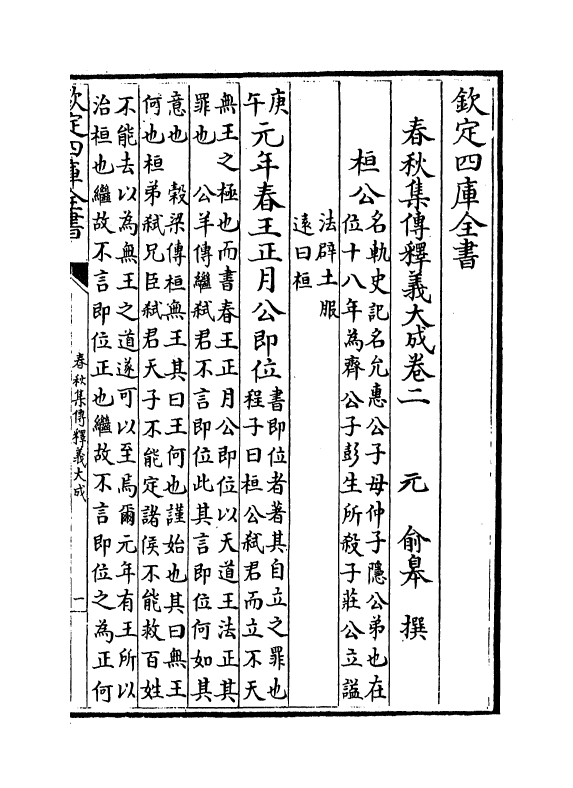 欽定四庫全書
春秋集傳釋義大成卷二　元　俞臯　撰
桓公
名軌史記名允惠公子母仲子隱公弟也在
位十八年為齊公子彭生所殺子莊公立謚
法辟土服
遠曰桓
庚
午
元年春王正月公即位
書即位者著其自立之罪也
程子曰桓公弑君而立不天
無王之極也而書春王正月公即位以天道王法正其
罪也　公羊傳繼弑君不言即位此其言即位何如其
意也　穀梁傳桓無王其曰王何也謹始也其曰無王
何也桓弟弑兄臣弑君天子不能定諸侯不能救百姓
不能去以為無王之道遂可以至焉爾元年有王所以
治桓也繼故不言即位正也繼故不言即位之為正何
欽定四庫全書
春秋集傳釋義大成
一